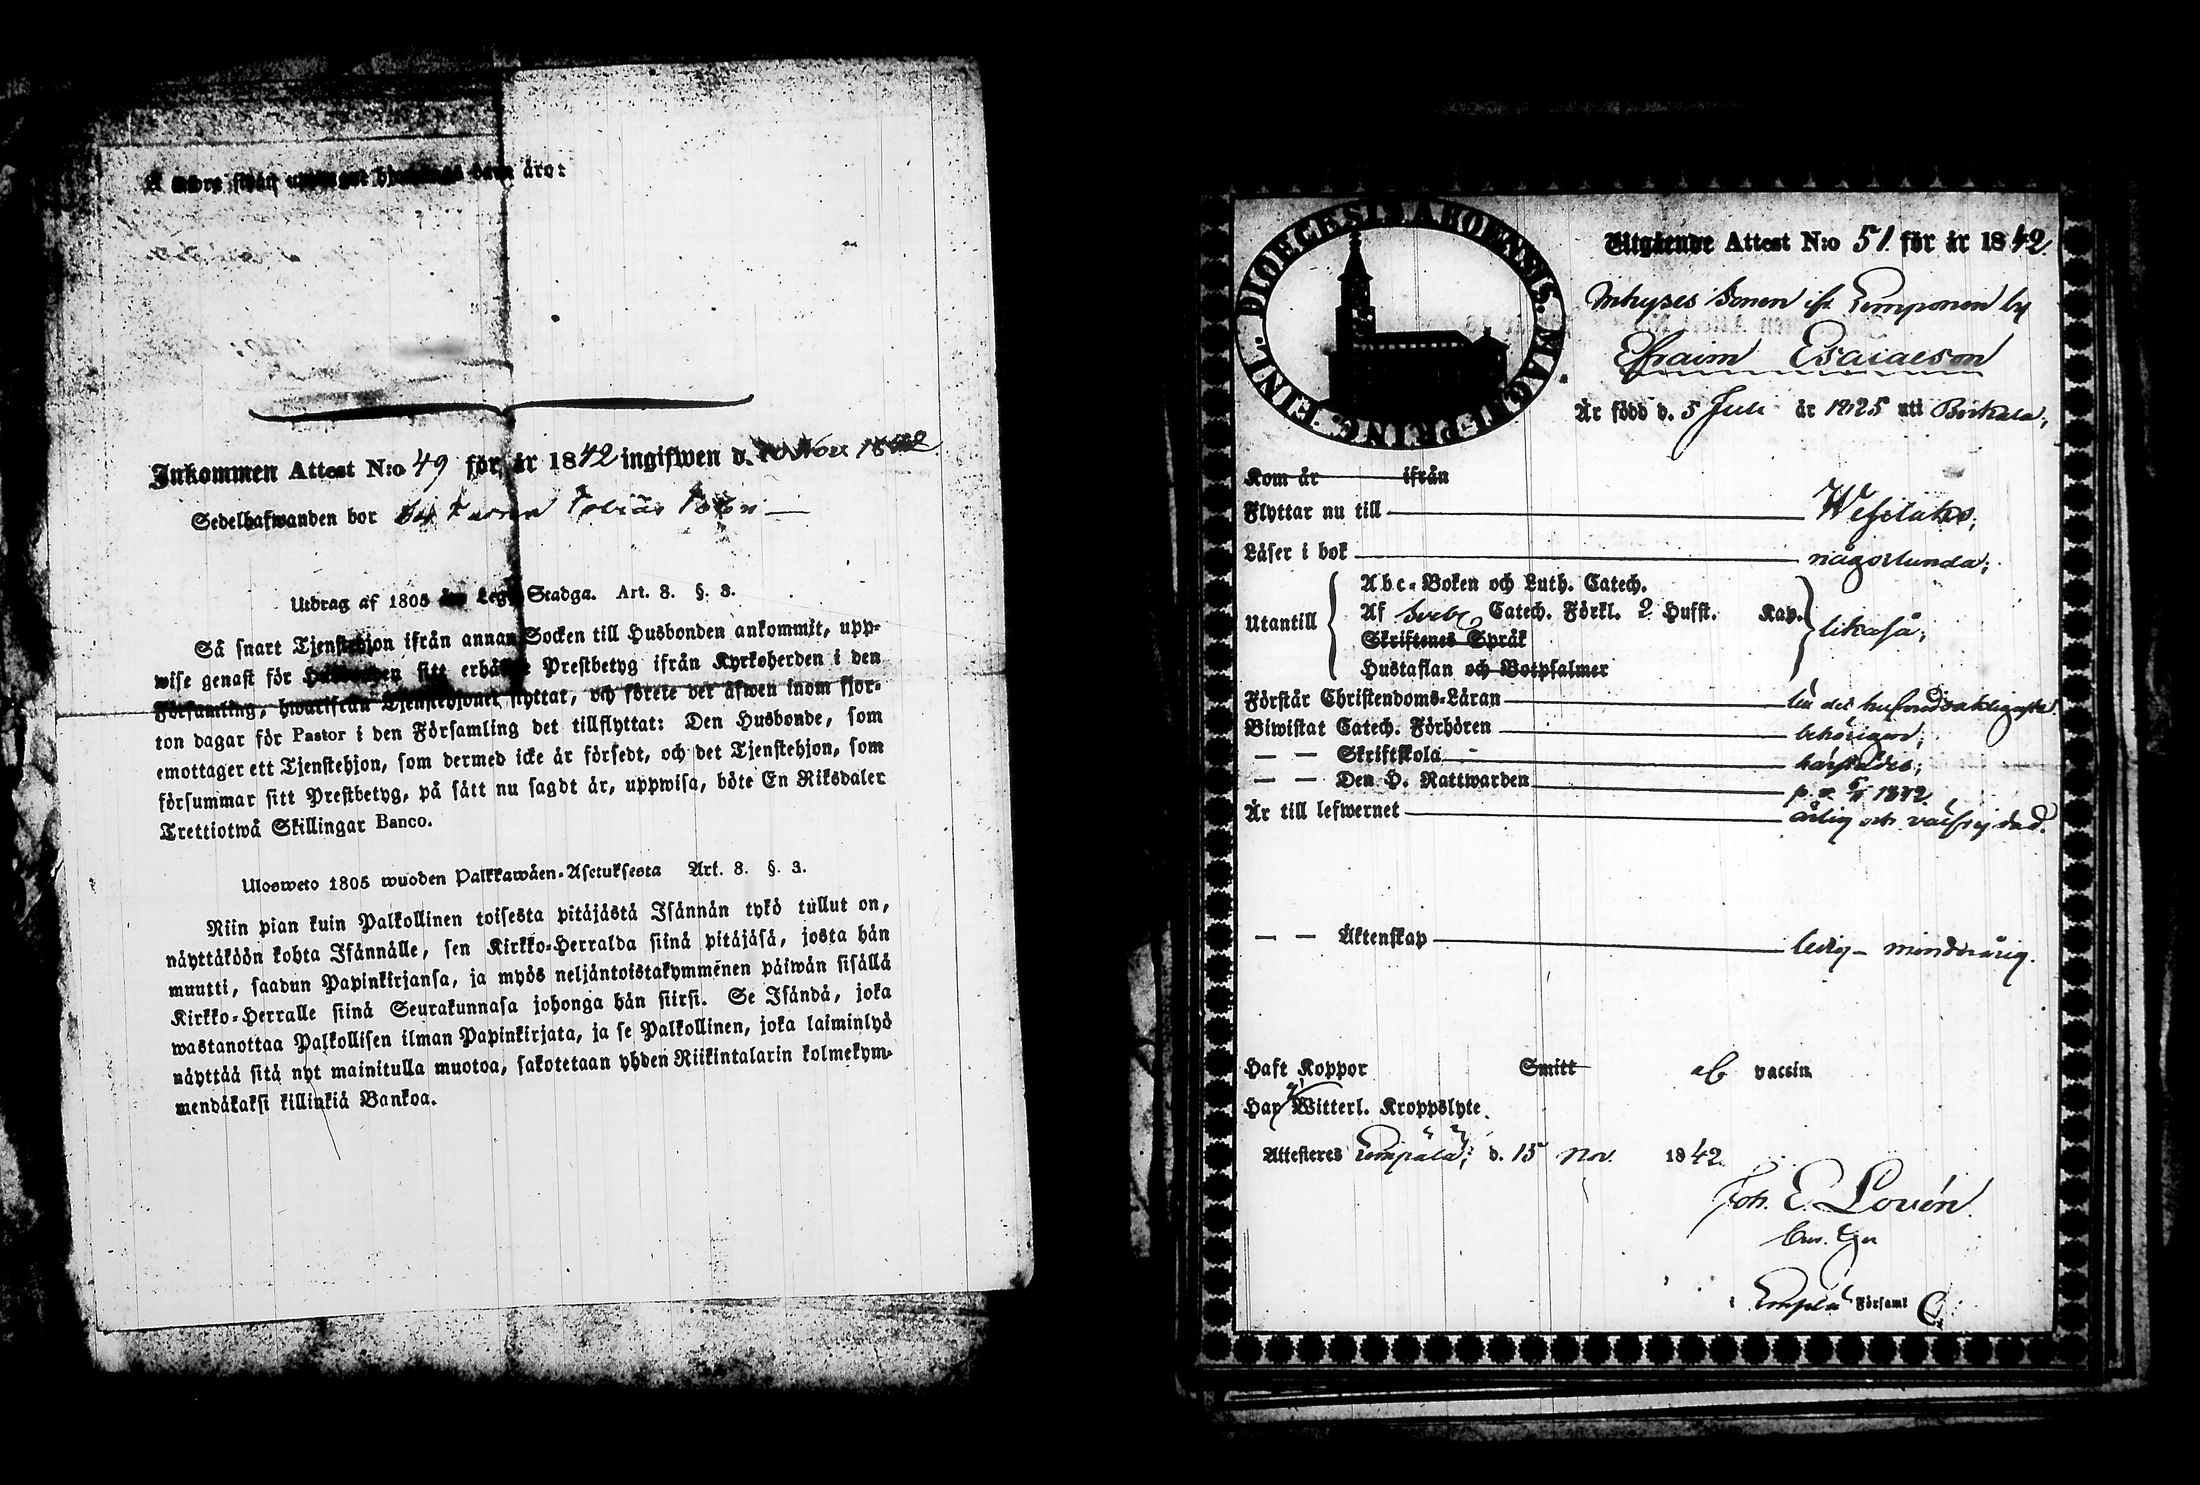 äro:
Inkommen Attest N:o 49 för år 1842 ingifwen d. Nov 1842
Sedelhafwanden bor Tobias
Utdrag af 1805 Lego Stadga. Art. 8. §. 3.
Så snart Tjenstehjon ifrån annan Socken till Husbonden ankommit, upp-
wise genast för sitt Prestbetyg ifrån Kyrkoherden i den
Församling, hwarifrån Tjenstehjonet flyttat, och förete det äfwen inom fjor-
ton dagar för Pastor i den Församling det tillflyttat: Den Husbonde, som
emottager ett Tjenstehjon, som dermed icke är försedt, och det Tjenstehjon, som
försummar sitt Prestbetyg, på sätt nu sagdt är, uppwisa, böte En Riksdaler
Trettiotwå Skillingar Banco.
Ulosweto 1805 wuoden Palkkawäen-Asetuksesta Art. 8. §. 3.
Niin pian kuin Palkollinen toisesta pitäjästä Isännän tykö tullut on,
näyttäköön kohta Isännälle, sen Kirkko-Herralda siinä pitäjäsä, josta hän
muutti, saadun Papinkirjansa, ja myös neljäntoistakymmenen päiwän sisällä
Kirkko-Herralle siinä Seurakunnasa johonga hän siirsi. Se Isändä, joka
wastanottaa Palkollisen ilman Papinkirjata, ja se Palkollinen, joka laiminlyö
näyttää sitä nyt mainitulla muotoa, sakotetaan yhden Riikintalarin kolmekym-
mendäkaksi killinkiä Bankoa.
DIOECESIS ABOENSIS. MAGNI PRINC. FINL.
Utgående Attest N:o 51 för år 1842.
Inhyses Sonen ifr. Lemponen by
Efraim Esaiaeson
Är född d. 5 Juli år 1825 uti Birkala,
Kom år ifrån
Flyttar nu till Wesilaks,
Läser i bok någorlunda,
Utantill
Abc-Boken och Luth. Catech.
Af Sveb. Catech. Förkl. 2 Hufst. Kap.
Skriftenes Språk
Hustaflan och Botpsalmer
likaså,
Förstår Christendoms-Läran till det hufvudsakligaste.
Biwistat Catech. Förhören behörigen,
— — Skriftskola härstädes,
— — Den H. Nattwarden 1842
Är till lefwernet ärlig och välfrejdad.
— — Äktenskap ledig – minderårig.
Haft Koppor Smitt af vaccin
Har ej Witterl. Kroppslyte.
Attesteres Lempälä, d. 15 Nov. 1842.
Joh. E. Lovén.
i Lempälä Församl